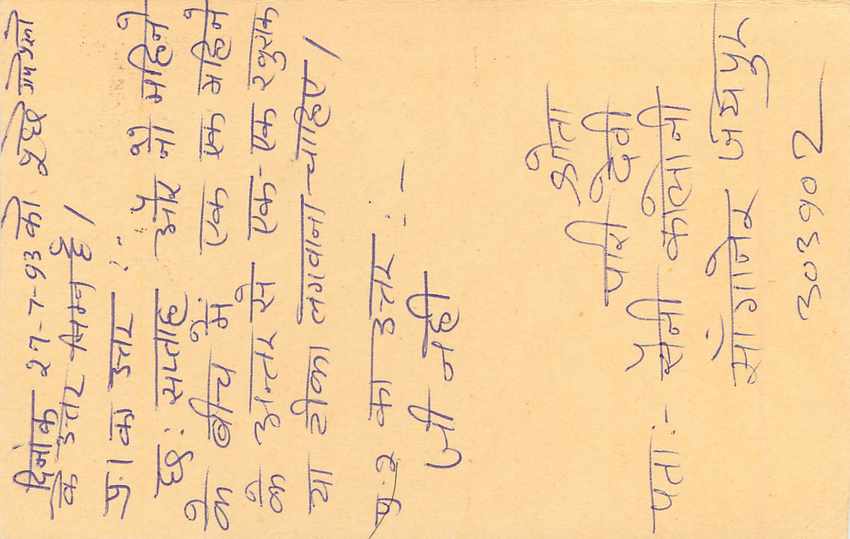 दिनांक 27-7-93 को पूछे गये प्रश्नो
के उत्तर निम्न है।
प्र.1 का उत्तर :-
छ: सप्ताह और नौ महिने
के बीच में एक एक महिने
के अन्तर से एक-एक खुराक
या टीका लगवाना चाहिए।
प्र.2 का उत्तर :-
जी नही
श्रोता
पारी देवी
पता :- सैनी कोलोनी
सांगानेर जयपुर
303902